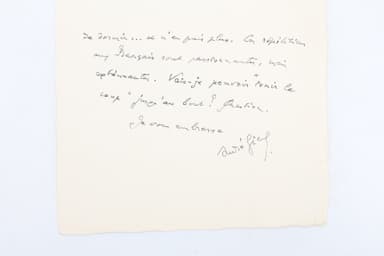 de dormir... et n'en puis plus. Les répétitions
aux Français sont passionnantes, mais
exténuantes. Vais-je pouvoir "tenir le
coup" jusqu'au bout? Question.
Je vous embrasse
André Gide